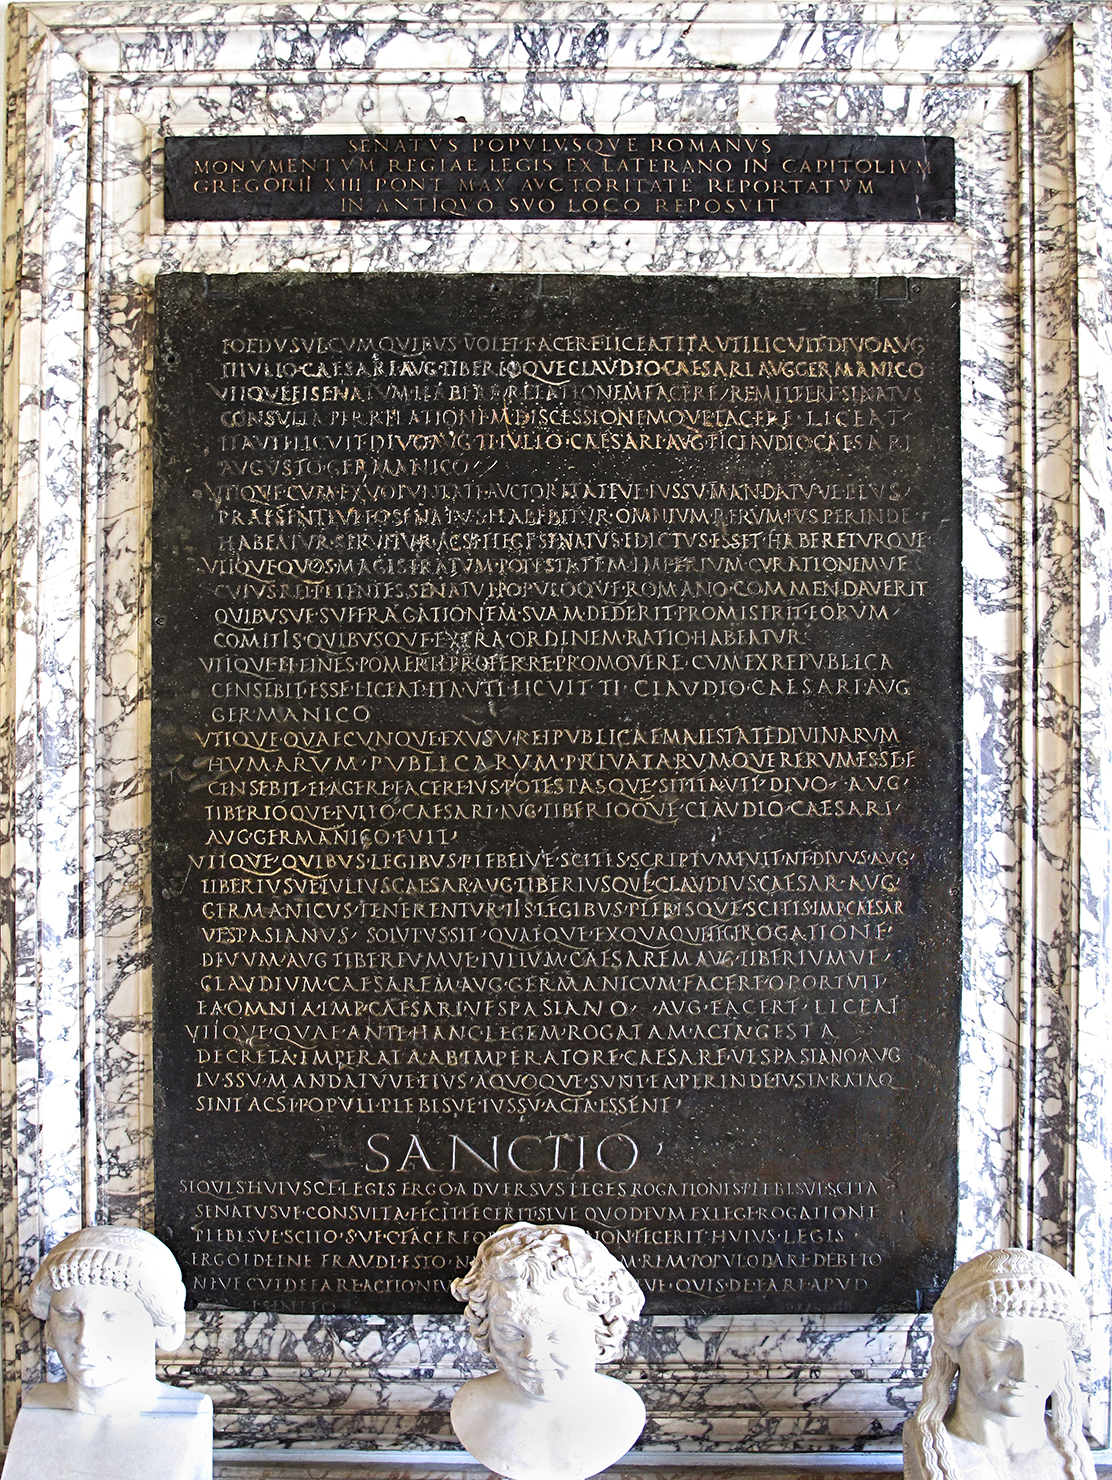 SENATVS POPVLVSQVE ROMANVS
MONVMENTVM REGIAE LEGIS EX LATERANO IN CAPITOLIVM
GREGORII XIII PONT MAX AVCTORITATE REPORTATVM
IN ANTIQVO SVO LOCO REPOSVIT
FOEDVSVE·CVM·QVIBVS·VOLET·FACERE·LICEAT·ITA·VTI·LICVIT·DIVO·AVG
TI·IVLIO·CAESARI·AVG·TIBERIOQVE·CLAVDIO·CAESARI·AVG·GERMANICO
VTIQVE·EI·SENATVM·HABERE·RELATIONEM·FACERE·REMITTERE·SENATVS
CONSVLTA·PER·RELATIONEM·DISCESSIONEMQVE·FACERE·LICEAT
ITA·VTI·LICVIT·DIVO·AVG·TI·IVLIO·CAESARI·AVG·TI·CLAVDIO·CAESARI
AVGVSTO·GERMANICO
VTIQVE·CVM·EX·VOLVNTATE·AVCTORITATEVE·IVSSV·MANDATVVE·EIVS
PRAESENTEVE·EO·SENATVS·HABEBITVR·OMNIVM·RERVM·IVS·PERINDE
HABEATVR·SERVETVR·AC·SI·E·LEGE·SENATVS·EDICTVS·ESSET·HABERETVRQVE
VTIQVE·QVOS·MAGISTRATVM·POTESTATEM·IMPERIVM·CVRATIONEMVE
CVIVS·REI·PETENTES·SENATVI·POPVLOQVE·ROMANO·COMMENDAVERIT
QVIBVSVE·SVFFRAGATIONEM·SVAM·DEDERIT·PROMISERIT·EORVM
COMITIS·QVIBVSQVE·EXTRA·ORDINEM·RATIO·HABEATVR
VTIQVE·EI·FINES·POMERII·PROFERRE·PROMOVERE·CVM·EX·REPVBLICA
CENSEBIT·ESSE·LICEAT·ITA·VTI·LICVIT·TI·CLAVDIO·CAESARI·AVG
GERMANICO
VTIQVE·QVAECVNQVE·EX·VSV·REIPVBLICAE·MAIESTATE·DIVINARVM
HVMARVM·PVBLICARVM·PRIVATARVMQVE·RERVM·ESSE·E
CENSEBIT·EI·AGERE·FACERE·IVS·POTESTASQVE·SIT·ITA·VTI·DIVO·AVG
TIBERIOQVE·IVLIO·CAESARI·AVG·TIBERIOQVE·CLAVDIO·CAESARI
AVG·GERMANICO·FVIT
VTIQVE·QVIBVS·LEGIBVS·PLEBEIVE·SCITIS·SCRIPTVM·FVIT·NE·DIVVS·AVG
TIBERIVSVE·IVLIVS·CAESAR·AVG·TIBERIVSQVE·CLAVDIVS·CAESAR·AVG
GERMANICVS·TENERENTVR·IIS·LEGIBVS·PLEBISQVE·SCITIS·IMP·CAESAR
VESPASIANVS·SOLVTVS·SIT·QVAEQVE·EX·QVAQVE·LEGE·ROGATIONE
DIVVM·AVG·TIBERIVMVE·IVLIVM·CAESAREM·AVG·TIBERIVMVE
CLAVDIVM·CAESAREM·AVG·GERMANICVM·FACERE·OPORTVIT
EA·OMNIA·IMP·CAESARI·VESPASIANO·AVG·FACERE·LICEAT
VTIQVE·QVAE·ANTE·HANC·LEGEM·ROGATAM·ACTA·GESTA
DECRETA·IMPERATA·AB·IMPERATORE·CAESARE·VESPASIANO·AVG
IVSSV·MANDATVVE·EIVS·A·QVOQVE·SVNT·EA·PERINDE·IVSTA·RATAQ
SINT·AC·SI·POPVLI·PLEBISVE·IVSSV·ACTA·ESSENT
SANCTIO
SI·QVIS·HVIVSCE·LEGIS·ERGO·ADVERSVS·LEGES·ROGATIONES·PLEBISVE·SCITA
SENATVSVE·CONSVLTA·FECIT·FECERIT·SIVE·QVOD·EVM·EX·LEGE·ROGATIONE
PLEBISVE·SCITO·S·VE·C·FACERE NON·FECERIT·HVIVS·LEGIS
ERGO·ID·EI·NE·FRAVDI·ESTO REM·POPVLO·DARE·DEBETO
NEVE·CVI·DE·EA·RE·ACTIO NEVE·QVIS·DE·EA·RE·APVD